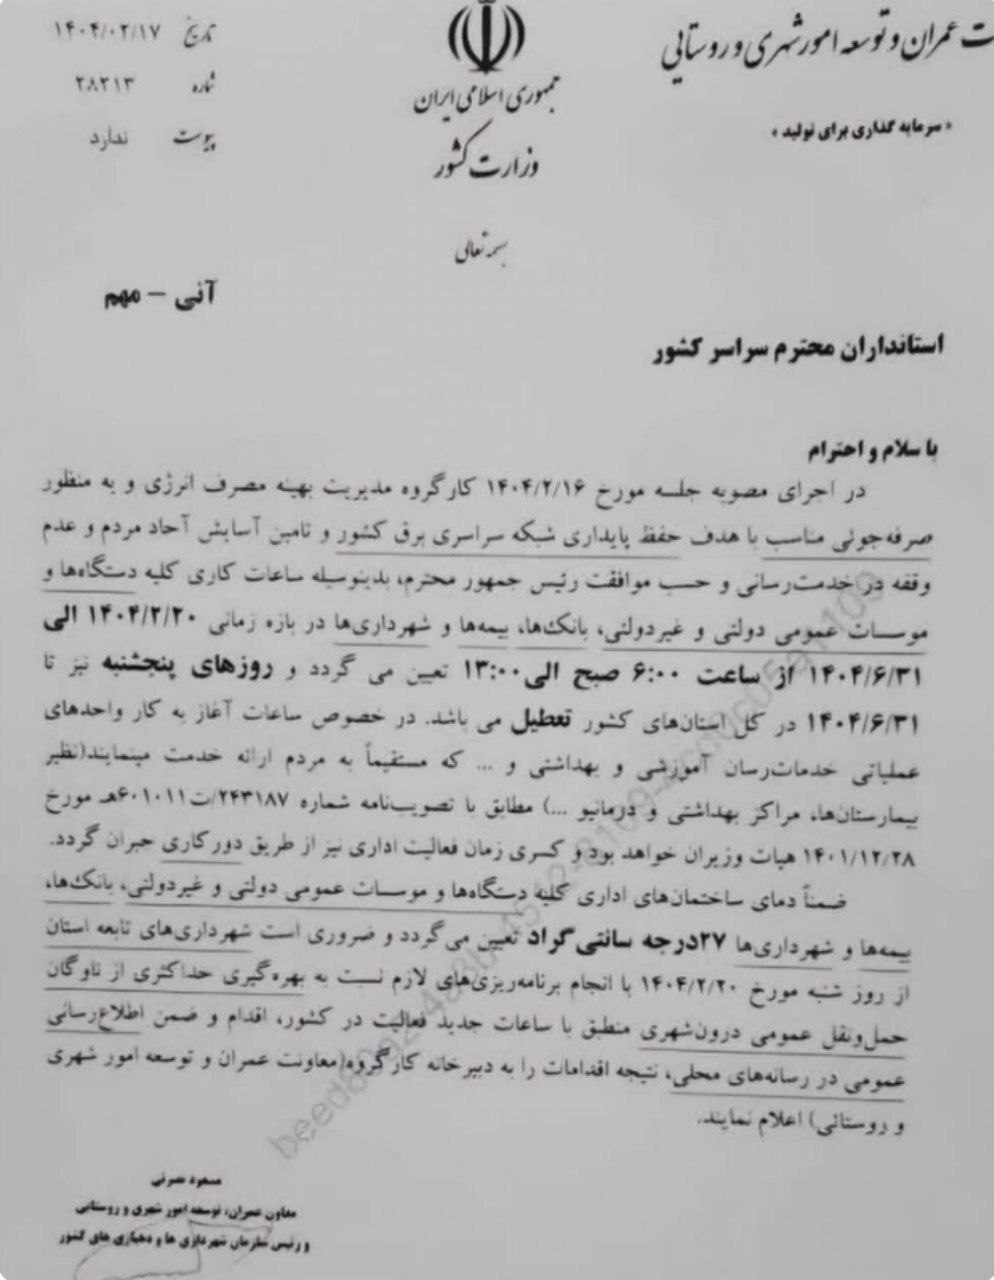 ت عمران و توسعه امور شهری و روستایی
« سرمایه گذاری برای تولید »
جمهوری اسلامی ایران
وزارت کشور
بسمه تعالی
تاریخ ۱۴۰۴/۰۲/۱۷
شماره ۲۸۲۱۳
پیوست ندارد
آنی – مهم
استانداران محترم سراسر کشور
با سلام و احترام
در اجرای مصوبه جلسه مورخ ۱۴۰۴/۲/۱۶ کارگروه مدیریت بهینه مصرف انرژی و به منظور
صرفه‌جوئی مناسب با هدف حفظ پایداری شبکه سراسری برق کشور و تامین آسایش آحاد مردم و عدم
وقفه در خدمت‌رسانی و حسب موافقت رئیس جمهور محترم، بدینوسیله ساعات کاری کلیه دستگاه‌ها و
موسسات عمومی دولتی و غیردولتی، بانک‌ها، بیمه‌ها و شهرداری‌ها در بازه زمانی ۱۴۰۴/۲/۲۰ الی
۱۴۰۴/۶/۳۱ از ساعت ۶:۰۰ صبح الی ۱۳:۰۰ تعیین می گردد و روزهای پنجشنبه نیز تا
۱۴۰۴/۶/۳۱ در کل استان‌های کشور تعطیل می باشد. در خصوص ساعات آغاز به کار واحدهای
عملیاتی خدمات‌رسان آموزشی و بهداشتی و ... که مستقیماً به مردم ارائه خدمت مینمایند(نظیر
بیمارستان‌ها، مراکز بهداشتی و درمانیو ...) مطابق با تصویب‌نامه شماره ۲۴۳۱۸۷/ت۶۰۱۰۱۱هـ مورخ
۱۴۰۱/۱۲/۲۸ هیات وزیران خواهد بود و کسری زمان فعالیت اداری نیز از طریق دورکاری جبران گردد.
ضمناً دمای ساختمان‌های اداری کلیه دستگاه‌ها و موسسات عمومی دولتی و غیردولتی، بانک‌ها،
بیمه‌ها و شهرداری‌ها ۲۷درجه سانتی‌گراد تعیین می‌گردد و ضروری است شهرداری‌های تابعه استان
از روز شنبه مورخ ۱۴۰۴/۲/۲۰ با انجام برنامه‌ریزی‌های لازم نسبت به بهره‌گیری حداکثری از ناوگان
حمل‌ونقل عمومی درون‌شهری منطبق با ساعات جدید فعالیت در کشور، اقدام و ضمن اطلاع‌رسانی
عمومی در رسانه‌های محلی، نتیجه اقدامات را به دبیرخانه کارگروه(معاونت عمران و توسعه امور شهری
و روستائی) اعلام نمایند.
مسعود نصرتی
معاون عمران، توسعه امور شهری و روستایی
و رئیس سازمان شهرداری ها و دهیاری های کشور